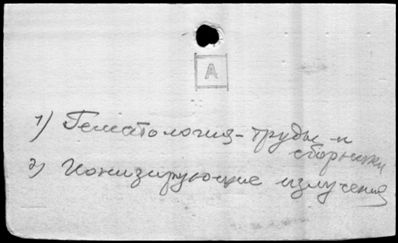 А
1) Гематология - труды и
сборники
2) Ионизирующие излучения